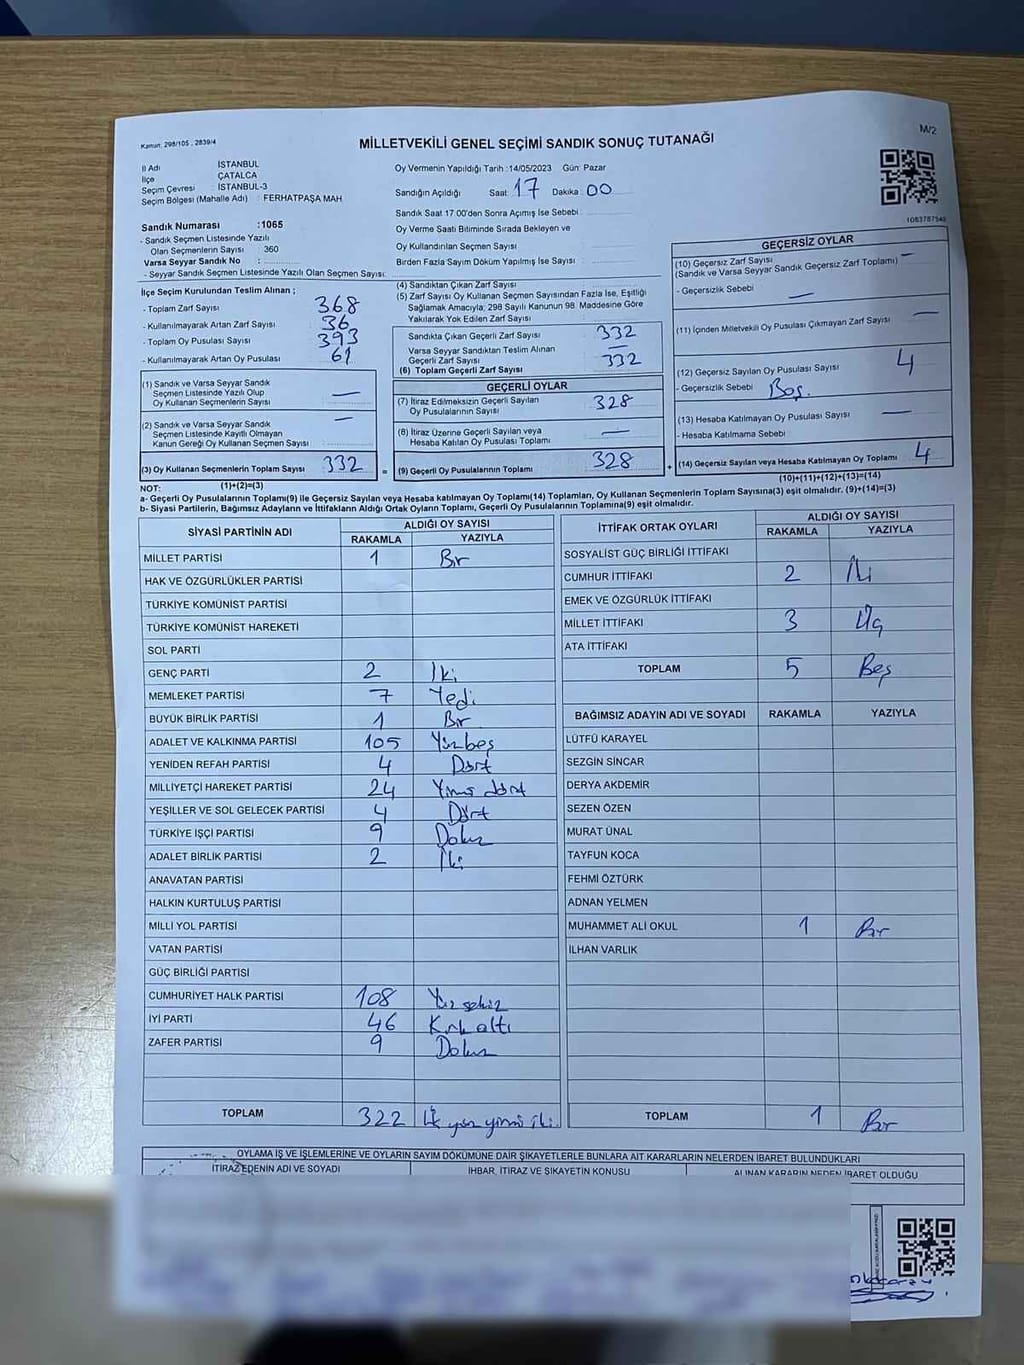 Kanun: 298/105 , 2839/4
MİLLETVEKİLİ GENEL SEÇİMİ SANDIK SONUÇ TUTANAĞI
M/2
İl Adı : İSTANBUL
İlçe : ÇATALCA
Seçim Çevresi : İSTANBUL-3
Seçim Bölgesi (Mahalle Adı) : FERHATPAŞA MAH
Oy Vermenin Yapıldığı Tarih :14/05/2023 Gün: Pazar
Sandığın Açıldığı Saat: 17 Dakika 00
Sandık Saat 17.00'den Sonra Açımış İse Sebebi
Oy Verme Saati Bitiminde Sırada Bekleyen ve
Oy Kullandırılan Seçmen Sayısı
Birden Fazla Sayım Döküm Yapılmış İse Sayısı
1083787546
Sandık Numarası :1065
- Sandık Seçmen Listesinde Yazılı
Olan Seçmenlerin Sayısı : 360
Varsa Seyyar Sandık No :
- Seyyar Sandık Seçmen Listesinde Yazılı Olan Seçmen Sayısı:
İlçe Seçim Kurulundan Teslim Alınan ;
- Toplam Zarf Sayısı 368
- Kullanılmayarak Artan Zarf Sayısı 36
- Toplam Oy Pusulası Sayısı 393
- Kullanılmayarak Artan Oy Pusulası 61
(1) Sandık ve Varsa Seyyar Sandık
Seçmen Listesinde Yazılı Olup
Oy Kullanan Seçmenlerin Sayısı —
(2) Sandık ve Varsa Seyyar Sandık
Seçmen Listesinde Kayıtlı Olmayan
Kanun Gereği Oy Kullanan Seçmen Sayısı —
(3) Oy Kullanan Seçmenlerin Toplam Sayısı 332
(1)+(2)=(3)
(4) Sandıktan Çıkan Zarf Sayısı
(5) Zarf Sayısı Oy Kullanan Seçmen Sayısından Fazla İse, Eşitliği
Sağlamak Amacıyla; 298 Sayılı Kanunun 98. Maddesine Göre
Yakılarak Yok Edilen Zarf Sayısı
Sandıkta Çıkan Geçerli Zarf Sayısı 332
Varsa Seyyar Sandıktan Teslim Alınan
Geçerli Zarf Sayısı —
(6) Toplam Geçerli Zarf Sayısı 332
GEÇERLİ OYLAR
(7) İtiraz Edilmeksizin Geçerli Sayılan
Oy Pusulalarının Sayısı 328
(8) İtiraz Üzerine Geçerli Sayılan veya
Hesaba Katılan Oy Pusulası Toplamı —
= (9) Geçerli Oy Pusulalarının Toplamı 328 +
GEÇERSİZ OYLAR
(10) Geçersiz Zarf Sayısı —
(Sandık ve Varsa Seyyar Sandık Geçersiz Zarf Toplamı)
- Geçersizlik Sebebi —
(11) İçinden Milletvekili Oy Pusulası Çıkmayan Zarf Sayısı —
(12) Geçersiz Sayılan Oy Pusulası Sayısı 4
- Geçersizlik Sebebi Boş.
(13) Hesaba Katılmayan Oy Pusulası Sayısı —
- Hesaba Katılmama Sebebi
(14) Geçersiz Sayılan veya Hesaba Katılmayan Oy Toplamı 4
(10)+(11)+(12)+(13)=(14)
NOT:
a- Geçerli Oy Pusulalarının Toplamı(9) ile Geçersiz Sayılan veya Hesaba katılmayan Oy Toplamı(14) Toplamları, Oy Kullanan Seçmenlerin Toplam Sayısına(3) eşit olmalıdır. (9)+(14)=(3)
b- Siyasi Partilerin, Bağımsız Adayların ve İttifakların Aldığı Ortak Oyların Toplamı, Geçerli Oy Pusulalarının Toplamına(9) eşit olmalıdır.
SİYASİ PARTİNİN ADI ALDIĞI OY SAYISI
RAKAMLA YAZIYLA
MİLLET PARTİSİ 1 Bir
HAK VE ÖZGÜRLÜKLER PARTİSİ
TÜRKİYE KOMÜNİST PARTİSİ
TÜRKİYE KOMÜNİST HAREKETİ
SOL PARTİ
GENÇ PARTİ 2 İki
MEMLEKET PARTİSİ 7 Yedi
BÜYÜK BİRLİK PARTİSİ 1 Bir
ADALET VE KALKINMA PARTİSİ 105 Yüzbeş
YENİDEN REFAH PARTİSİ 4 Dört
MİLLİYETÇİ HAREKET PARTİSİ 24 Yirmi dört
YEŞİLLER VE SOL GELECEK PARTİSİ 4 Dört
TÜRKİYE İŞÇİ PARTİSİ 9 Dokuz
ADALET BİRLİK PARTİSİ 2 İki
ANAVATAN PARTİSİ
HALKIN KURTULUŞ PARTİSİ
MİLLİ YOL PARTİSİ
VATAN PARTİSİ
GÜÇ BİRLİĞİ PARTİSİ
CUMHURİYET HALK PARTİSİ 108 Yüz sekiz
İYİ PARTİ 46 Kırk altı
ZAFER PARTİSİ 9 Dokuz
TOPLAM 322 Üç yüz yirmi iki
İTTİFAK ORTAK OYLARI ALDIĞI OY SAYISI
RAKAMLA YAZIYLA
SOSYALİST GÜÇ BİRLİĞİ İTTİFAKI
CUMHUR İTTİFAKI 2 İki
EMEK VE ÖZGÜRLÜK İTTİFAKI
MİLLET İTTİFAKI 3 Üç
ATA İTTİFAKI
TOPLAM 5 Beş
BAĞIMSIZ ADAYIN ADI VE SOYADI RAKAMLA YAZIYLA
LÜTFÜ KARAYEL
SEZGİN SİNCAR
DERYA AKDEMİR
SEZEN ÖZEN
MURAT ÜNAL
TAYFUN KOCA
FEHMİ ÖZTÜRK
ADNAN YELMEN
MUHAMMET ALİ OKUL 1 Bir
İLHAN VARLIK
TOPLAM 1 Bir
OYLAMA İŞ VE İŞLEMLERİNE VE OYLARIN SAYIM DÖKÜMÜNE DAİR ŞİKAYETLERLE BUNLARA AİT KARARLARIN NELERDEN İBARET BULUNDUKLARI
İTİRAZ EDENİN ADI VE SOYADI İHBAR, İTİRAZ VE ŞİKAYETİN KONUSU ALINAN KARARIN NEDEN İBARET OLDUĞU